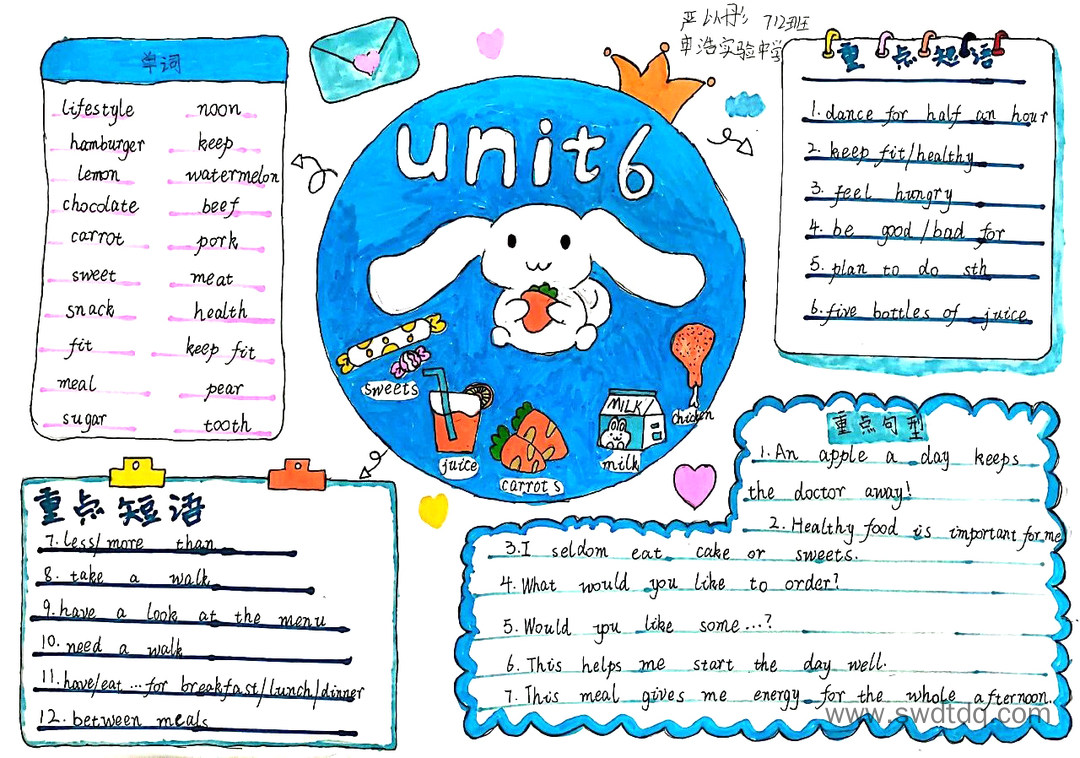 严以彤 712班
卓浩实验中学
unit6
单词
lifestyle noon
hamburger keep
lemon watermelon
chocolate beef
carrot pork
sweet meat
snack health
fit keep fit
meal pear
sugar tooth
重点短语
1.dance for half an hour
2.keep fit/healthy
3.feel hungry
4.be good/bad for
5.plan to do sth
6.five bottles of juice
sweets
juice
carrots
MILK
milk
chicken
重点短语
7.less/more than
8.take a walk
9.have a look at the menu
10.need a walk
11.have/eat...for breakfast/lunch/dinner
12.between meals
重点句型
1.An apple a day keeps
the doctor away!
2.Healthy food is important for me
3.I seldom eat cake or sweets.
4.What would you like to order?
5.Would you like some...?
6.This helps me start the day well.
7.This meal gives me energy for the whole afternoon.
www.swdtdq.com